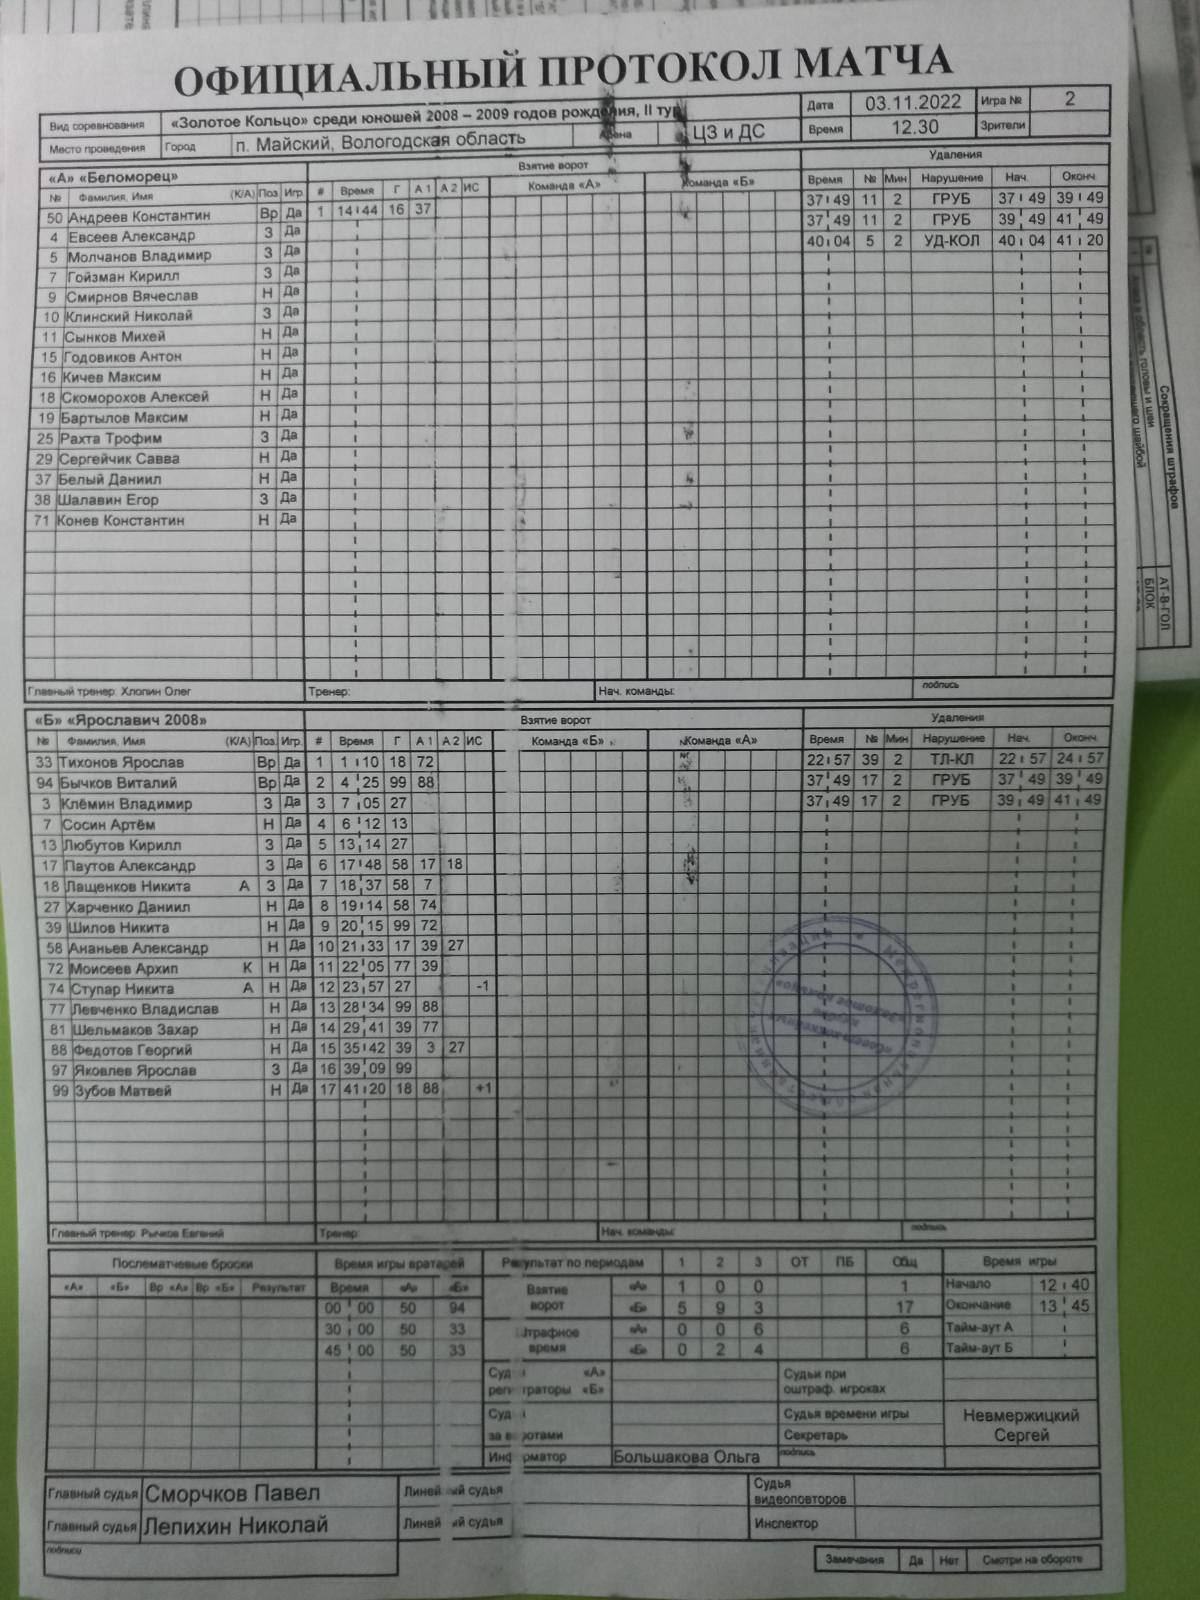 ОФИЦИАЛЬНЫЙ ПРОТОКОЛ МАТЧА
Вид соревнования «Золотое Кольцо» среди юношей 2008 – 2009 годов рождения, II тур Дата 03.11.2022 Игра № 2
Место проведения Город п. Майский, Вологодская область Арена ЦЗ и ДС Время 12.30 Зрители
«А» «Беломорец» Взятие ворот Удаления
№ Фамилия, Имя (К/А) Поз. Игр. # Время Г А 1 А 2 ИС Команда «А» Команда «Б» Время № Мин Нарушение Нач. Оконч.
50 Андреев Константин Вр Да 1 14 44 16 37 37 49 11 2 ГРУБ 37 49 39 49
4 Евсеев Александр З Да 37 49 11 2 ГРУБ 39 49 41 49
5 Молчанов Владимир З Да 40 04 5 2 УД-КОЛ 40 04 41 20
7 Гойзман Кирилл З Да
9 Смирнов Вячеслав Н Да
10 Клинский Николай З Да
11 Сынков Михей Н Да
15 Годовиков Антон Н Да
16 Кичев Максим Н Да
18 Скоморохов Алексей Н Да
19 Бартылов Максим Н Да
25 Рахта Трофим З Да
29 Сергейчик Савва Н Да
37 Белый Даниил Н Да
38 Шалавин Егор З Да
71 Конев Константин Н Да
Главный тренер: Хлопин Олег Тренер: Нач. команды: подпись
«Б» «Ярославич 2008» Взятие ворот Удаления
№ Фамилия, Имя (К/А) Поз. Игр. # Время Г А 1 А 2 ИС Команда «Б» Команда «А» Время № Мин Нарушение Нач. Оконч.
33 Тихонов Ярослав Вр Да 1 1 10 18 72 22 57 39 2 ТЛ-КЛ 22 57 24 57
94 Бычков Виталий Вр Да 2 4 25 99 88 37 49 17 2 ГРУБ 37 49 39 49
3 Клёмин Владимир З Да 3 7 05 27 37 49 17 2 ГРУБ 39 49 41 49
7 Сосин Артём Н Да 4 6 12 13
13 Любутов Кирилл З Да 5 13 14 27
17 Паутов Александр З Да 6 17 48 58 17 18
18 Лащенков Никита А З Да 7 18 37 58 7
27 Харченко Даниил Н Да 8 19 14 58 74
39 Шилов Никита Н Да 9 20 15 99 72
58 Ананьев Александр Н Да 10 21 33 17 39 27
72 Моисеев Архип К Н Да 11 22 05 77 39
74 Ступар Никита А Н Да 12 23 57 27 -1
77 Левченко Владислав Н Да 13 28 34 99 88
81 Шельмаков Захар Н Да 14 29 41 39 77
88 Федотов Георгий Н Да 15 35 42 39 3 27
97 Яковлев Ярослав З Да 16 39 09 99
99 Зубов Матвей Н Да 17 41 20 18 88 +1
Главный тренер: Рычков Евгений Тренер: Нач. команды: подпись
Послематчевые броски Время игры вратарей Результат по периодам 1 2 3 ОТ ПБ Общ Время игры
«А» «Б» Вр «А» Вр «Б» Результат Время «А» «Б» Взятие ворот «А» 1 0 0 1 Начало 12 40
00 00 50 94 «Б» 5 9 3 17 Окончание 13 45
30 00 50 33 Штрафное время «А» 0 0 6 6 Тайм-аут А
45 00 50 33 «Б» 0 2 4 6 Тайм-аут Б
«А» Судьи при
«Б» оштраф. игроках
Судья времени игры Невмержицкий
Секретарь Сергей
Информатор Большакова Ольга подпись
Главный судья Сморчков Павел Линейный судья Судья видеоповторов
Главный судья Лепихин Николай Линейный судья Инспектор
подписи
Замечания Да Нет Смотри на обороте
Сокращения штрафов
АТ-В-ГОЛ
БЛОК